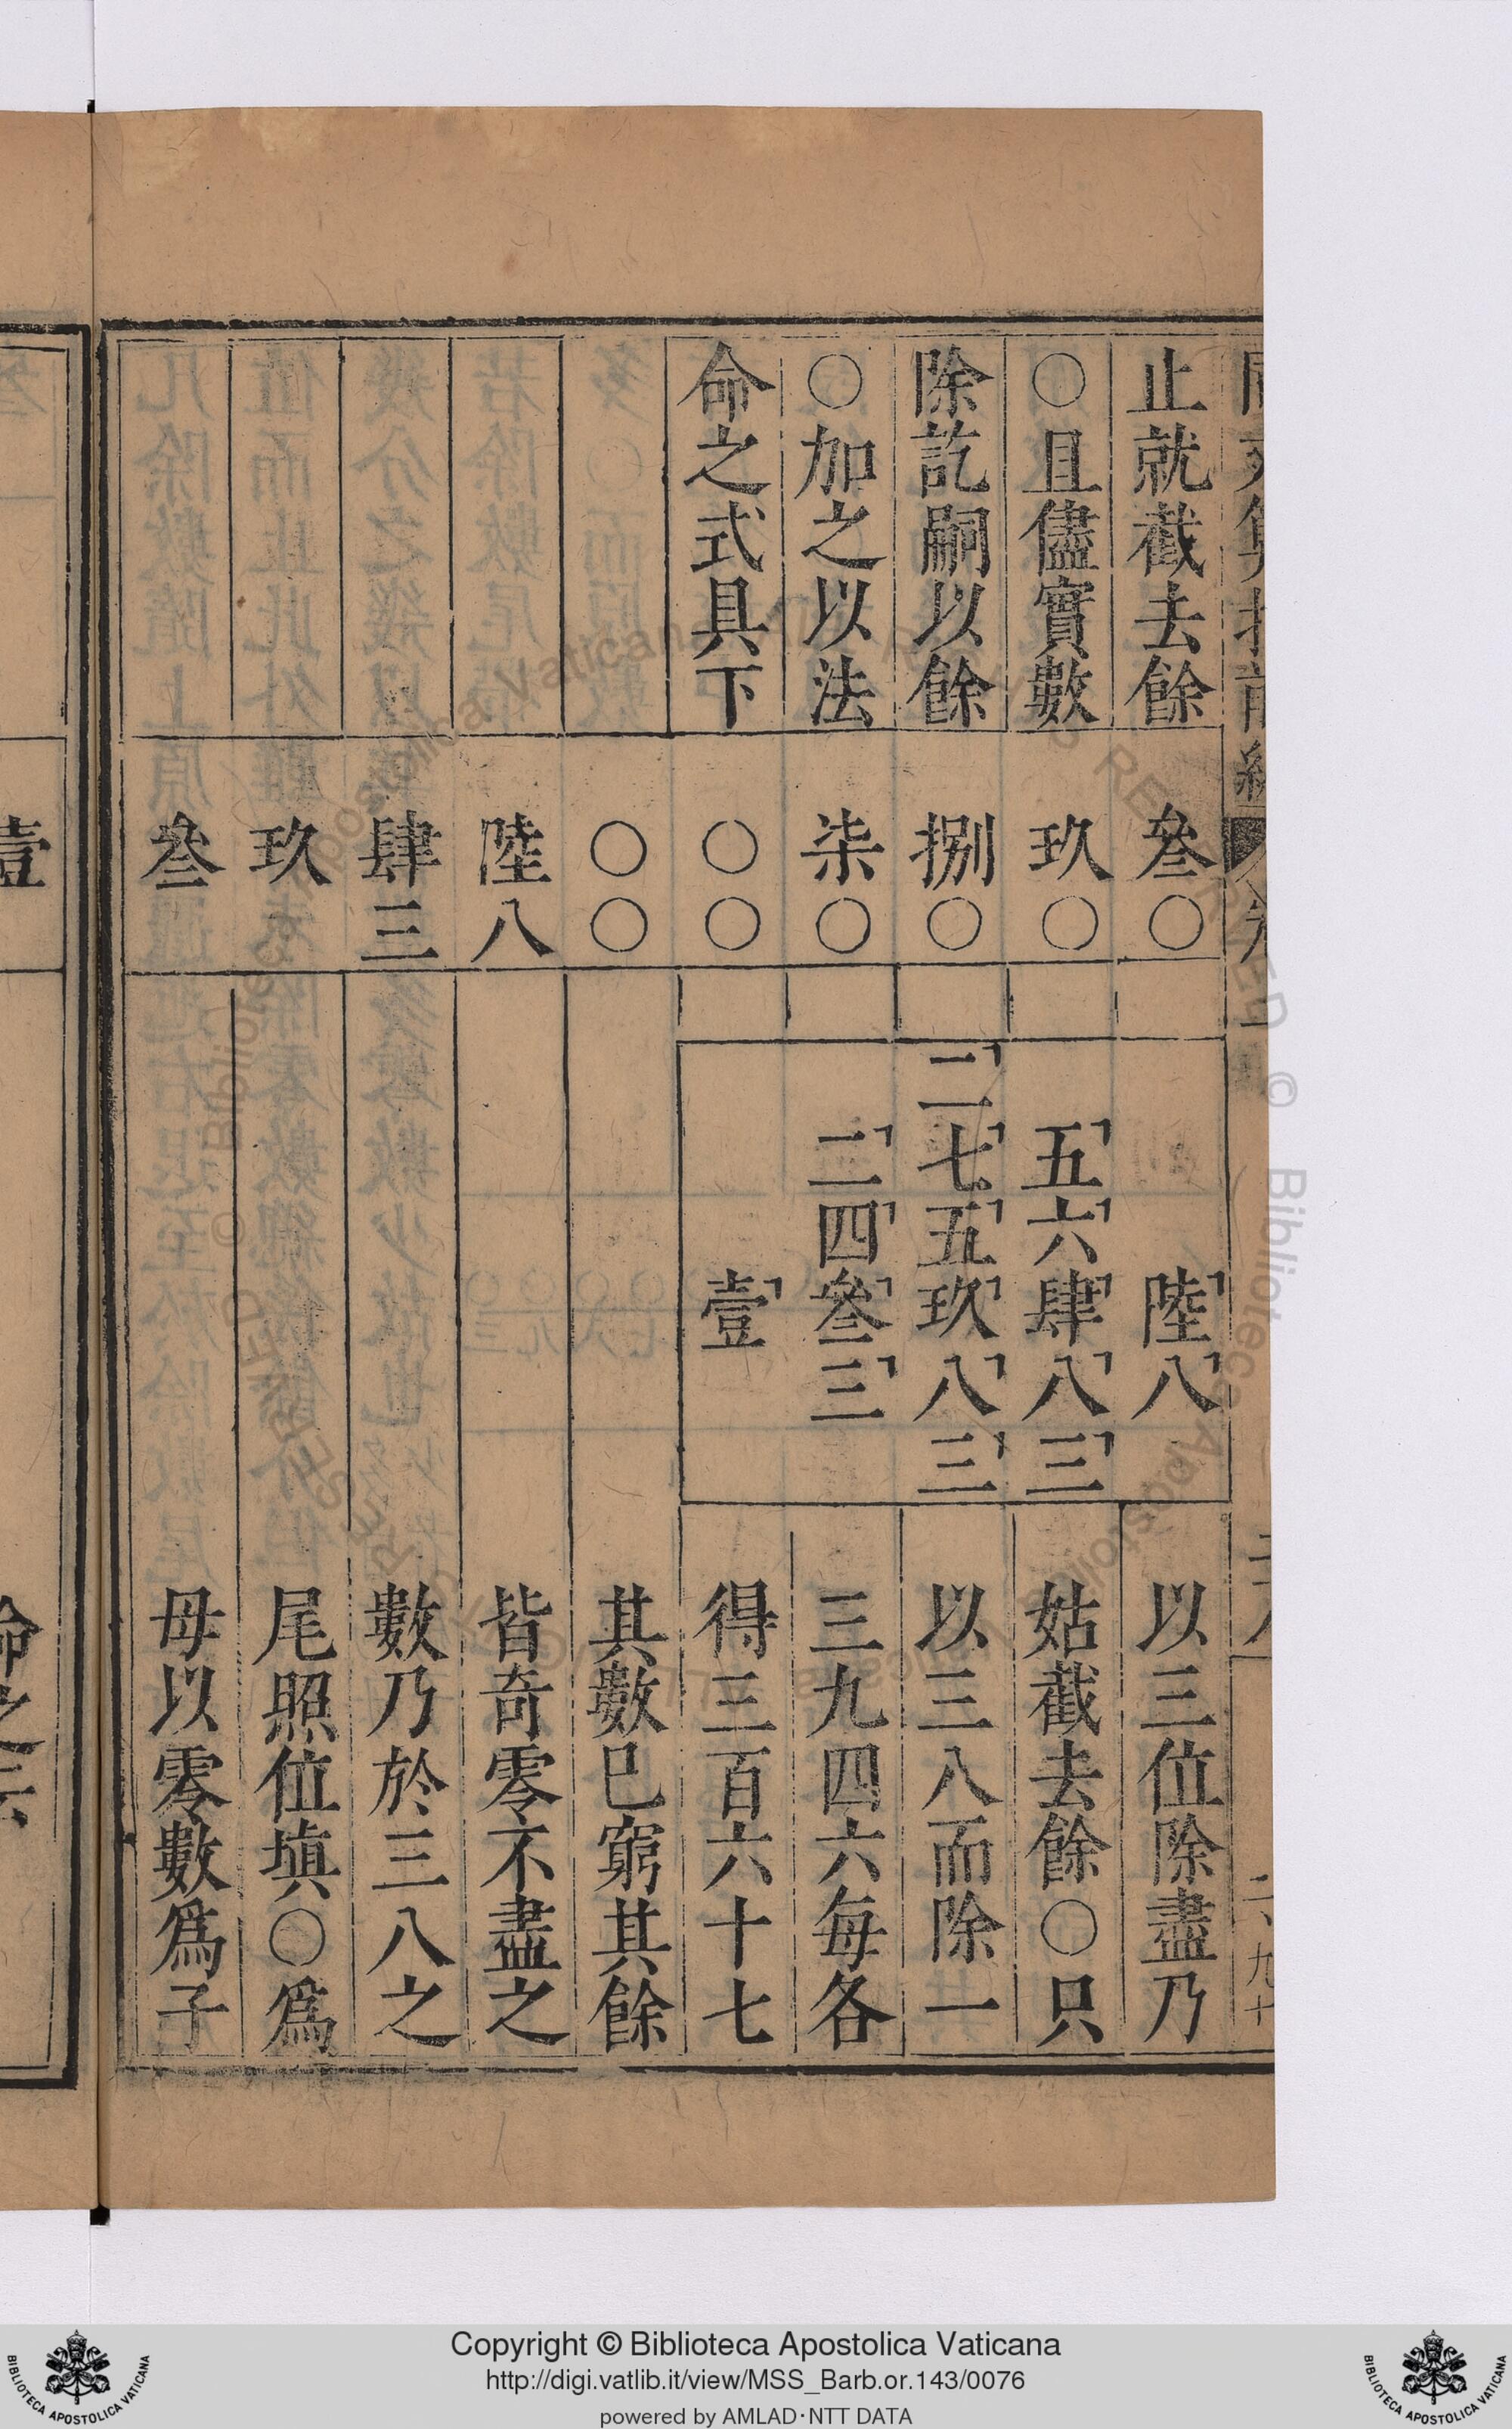 止就截去餘
○且儘實數
除訖嗣以餘
○加之以法
命之式具下
叁○
玖○
捌○
柒○
○○
○○
陸八
肆三
玖
叁
陸八
五六肆八三
二七五玖八三
二四叁三
壹
以三位除盡乃
姑截去餘○只
以三八而除一
三九四六每各
得三百六十七
其數已窮其餘
皆奇零不盡之
數乃於三八之
尾照位填○爲
母以零數爲子
壹
命之云
Copyright © Biblioteca Apostolica Vaticana
http://digi.vatlib.it/view/MSS_Barb.or.143/0076
powered by AMLAD·NTT DATA
BIBLIOTECA APOSTOLICA VATICANA
BIBLIOTECA APOSTOLICA VATICANA